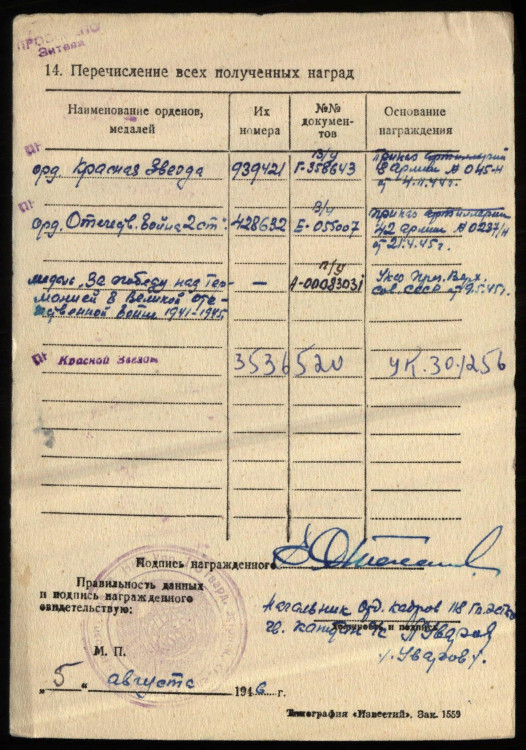 ПРОВЕРЕНО
14. Перечисление всех полученных наград
Наименование орденов, медалей
Их номера
№№ документов
Основание награждения
орд. Красная Звезда 939421 в/у Г-358643 приказ артиллерии 8 армии № 045-н от 4.11.44г.
орд. Отечеств. Война 2 ст. 428632 в/у Е-055007 приказ артиллерии 42 армии № 0237/н от 21.4.45г.
медаль „За победу над Германией в Великой Отечественной Войне 1941-1945 — п/у А-00083031 Указ През. Верх. Сов. СССР от 9.5.45г.
Красной Звезды 3536520 УК. 30.1256
Подпись награжденного
Правильность данных
и подпись награжденного
свидетельствую:
Начальник отд. кадров 118
гв. капитан
/Уваров/.
М. П.
„5“ августа 1946 г.
Типография «Известий». Зак. 1559